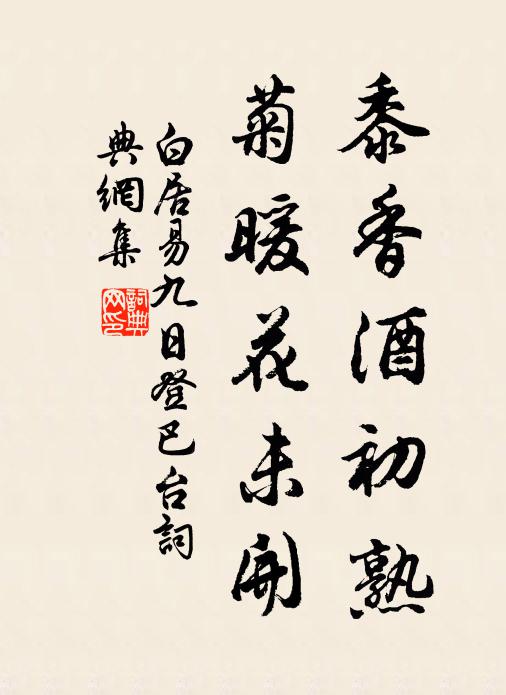 黍香酒初熟
菊暖花未開
白居易九日登巴台詞
典網集
詞典
网印